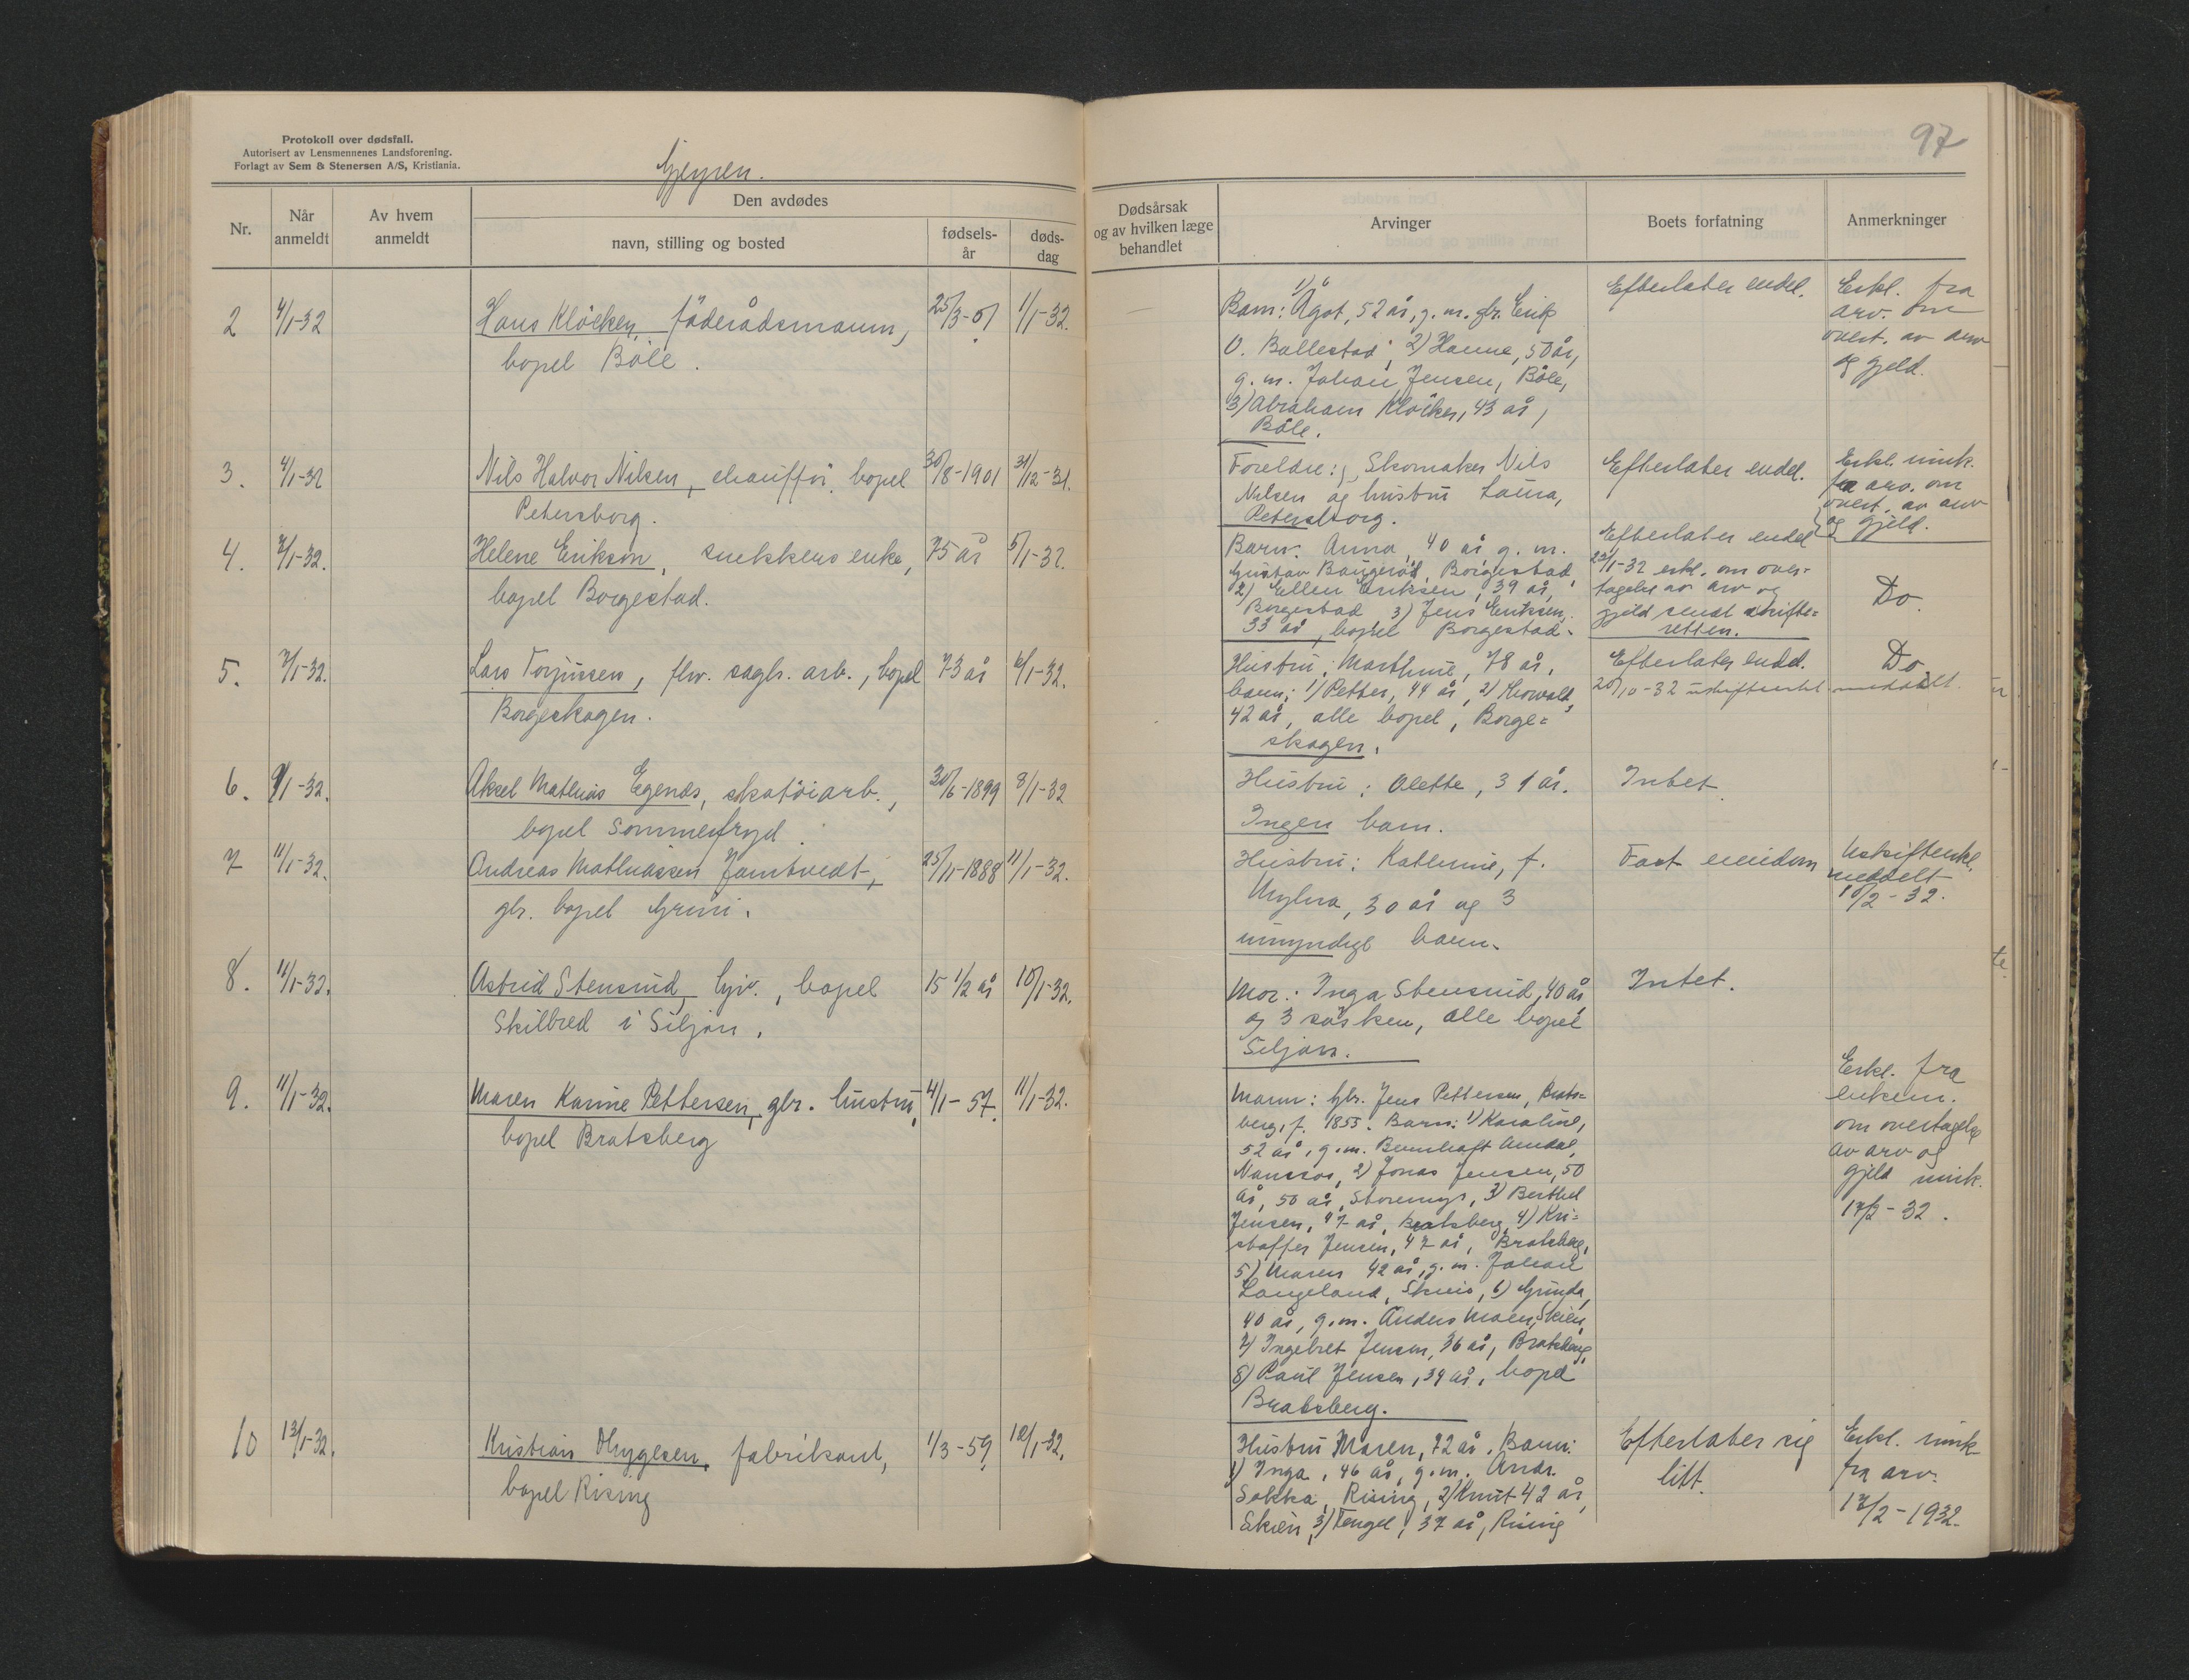 Protokoll over dødsfall.
Autorisert av Lensmennenes Landsforening.
Forlagt av Sem & Stenersen A/S, Kristiania.
Gjerpen.
Nr.
Når anmeldt
Av hvem anmeldt
Den avdødes
navn, stilling og bosted
fødsels-år
døds-dag
2 4/1-32 Hans Klöcker, föderådsmann, 25/3-51 1/1-32.
bopel Böle.
3. 4/1-32 Nils Halvor Nilsen, chaufför, bopel 30/8-1901 31/12-31.
Petersborg.
4. 7/1-32. Helene Erikson, snekkers enke, 75 år 5/1-32.
bopel Borgestad.
5. 7/1-32. Lars Torjussen, fhv. sagbr. arb., bopel 73 år 4/1-32.
Borgeskogen.
6. 9/1-32. Aksel Mathias Egenæs, skotöiarb., 30/6-1899 8/1-32
bopel Sommerfryd.
7 11/1-32. Andreas Mathiassen Jomtvedt, 25/11-1888 11/1-32.
gbr. bopel Grini.
8. 11/1-32. Astrid Stensrud, hjv., bopel 15 1/2 år 10/1-32.
Skilbred i Siljan.
9. 11/1-32. Maren Karine Pettersen, gbr. hustru, 4/1-57. 11/1-32.
bopel Bratsberg
10 13/1-32. Kristian Thygesen, fabrikant, 1/3-59. 12/1-32.
bopel Rising
97
Dødsårsak og av hvilken læge behandlet
Arvinger
Boets forfatning
Anmerkninger
Barn: 1) Ågot, 52 år, g. m. gbr. Erik
O. Ballestad, 2) Hanne, 50 år,
g. m. Johan Jensen, Böle,
3) Abraham Klöcker, 43 år,
Böle.
Efterlater endel.
Erkl. fra
arv. om
overt. av arv
og gjeld.
Foreldre: Skomaker Nils
Nilsen og hustru Laura,
Petersborg.
Efterlater endel.
Erkl. innk.
fra arv. om
overt. av arv
og gjeld.
Barn: Anna, 40 år g. m.
Gustav Baugeröd, Borgestad,
2) Ellen Eriksen, 39 år,
Borgestad 3) Jens Eriksen,
33 år, bopel Borgestad.
Efterlater endel
23/1-32 erkl. om over-
tagelse av arv og
gjeld sendt skifte-
retten.
Do.
Hustru: Marthine, 78 år,
barn: 1) Petter, 44 år, 2) Thorvald,
42 år, alle bopel, Borge-
skogen.
Efterlater endel.
20/10-32 uskifteerkl meddelt.
Do.
Hustru: Olette, 31 år.
Ingen barn.
Intet.
Hustru: Kathrine, f.
Myhra, 30 år og 3
umyndige barn.
Fast eiendom
Uskifteerkl.
meddelt
10/2-32.
Mor: Inga Stensrud, 40 år,
og 3 søsken, alle bopel
Siljan.
Intet.
Mann: Gbr. Jens Pettersen, Brats-
berg, f. 1855. Barn: 1) Karoline,
52 år, g. m. Amdal,
Namsos, 2) Jonas Jensen, 50
år, 50 år, Storemyr, 3) Berthel
Jensen, 47 år, Bratsberg, 4) Kri-
stoffer Jensen, 47 år, Bratsberg,
5) Maren 42 år, g. m. Johan
Langeland, Skien, 6) Gunda,
40 år, g. m. Anders Moen, Skien,
7) Ingebret Jensen, 36 år, Bratsberg,
8) Paul Jensen, 34 år, bopel
Bratsberg.
Erkl. fra
enkem.
om overtagelse
av arv og
gjeld innk.
17/2-32.
Hustru Maren, 72 år. Barn:
1) Inga, 46 år, g. m. Andr.
Sokka, Rising, 2) Knut 42 år,
Skien, 3) Tengel, 37 år, Rising
Efterlater sig
litt.
Erkl. innk
fra arv.
17/2-1932.